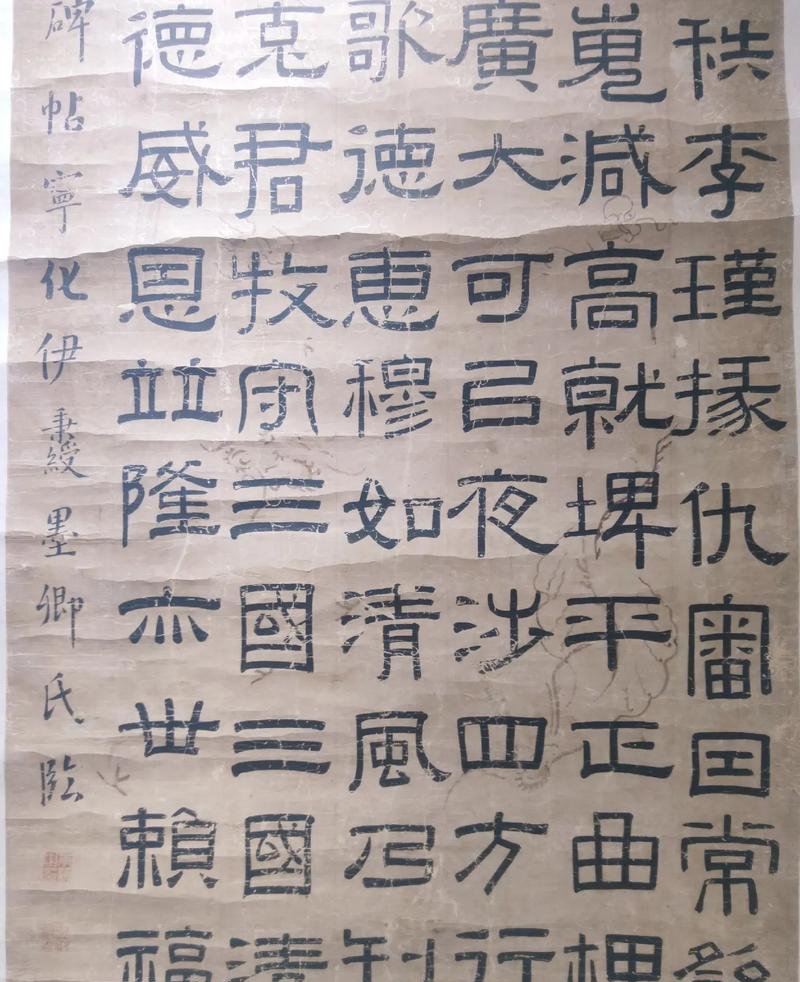 秩李瑾掾仇審因常繇
嵬減高就埤平正曲柙
廣大可㠯夜涉四方行
歌德惠穆如清風乃刊
克君牧守三國三國清
德威恩竝隆亦世賴福
碑帖寧化伊秉綬墨卿氏臨